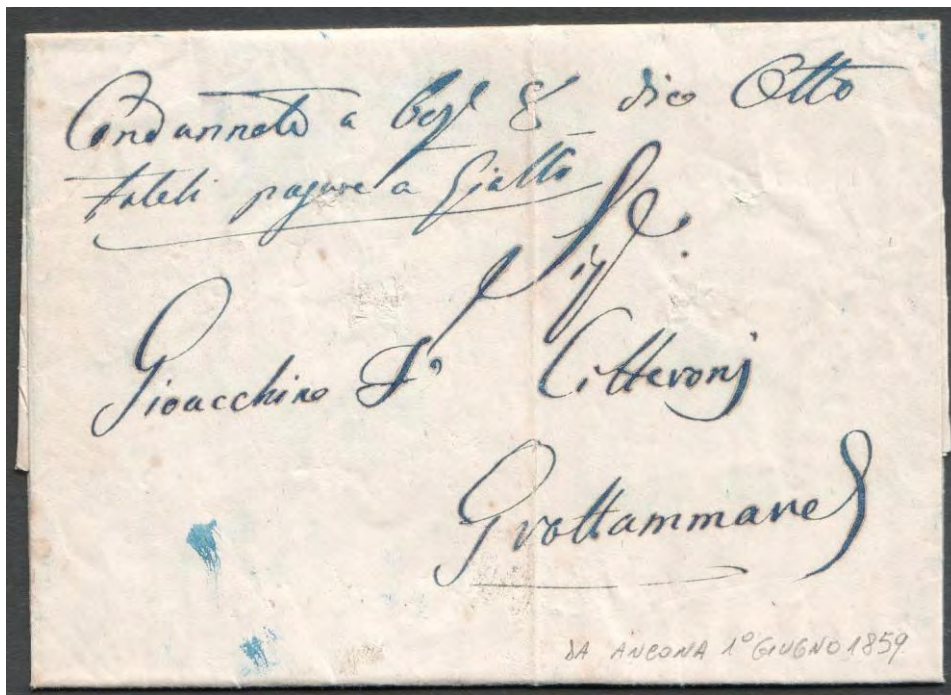 Condannato a 8 dico Otto
fateli pagare a Giallo
Sig.
Gioacchino Citteronj
Grottammare
DA ANCONA 1° GIUGNO 1859